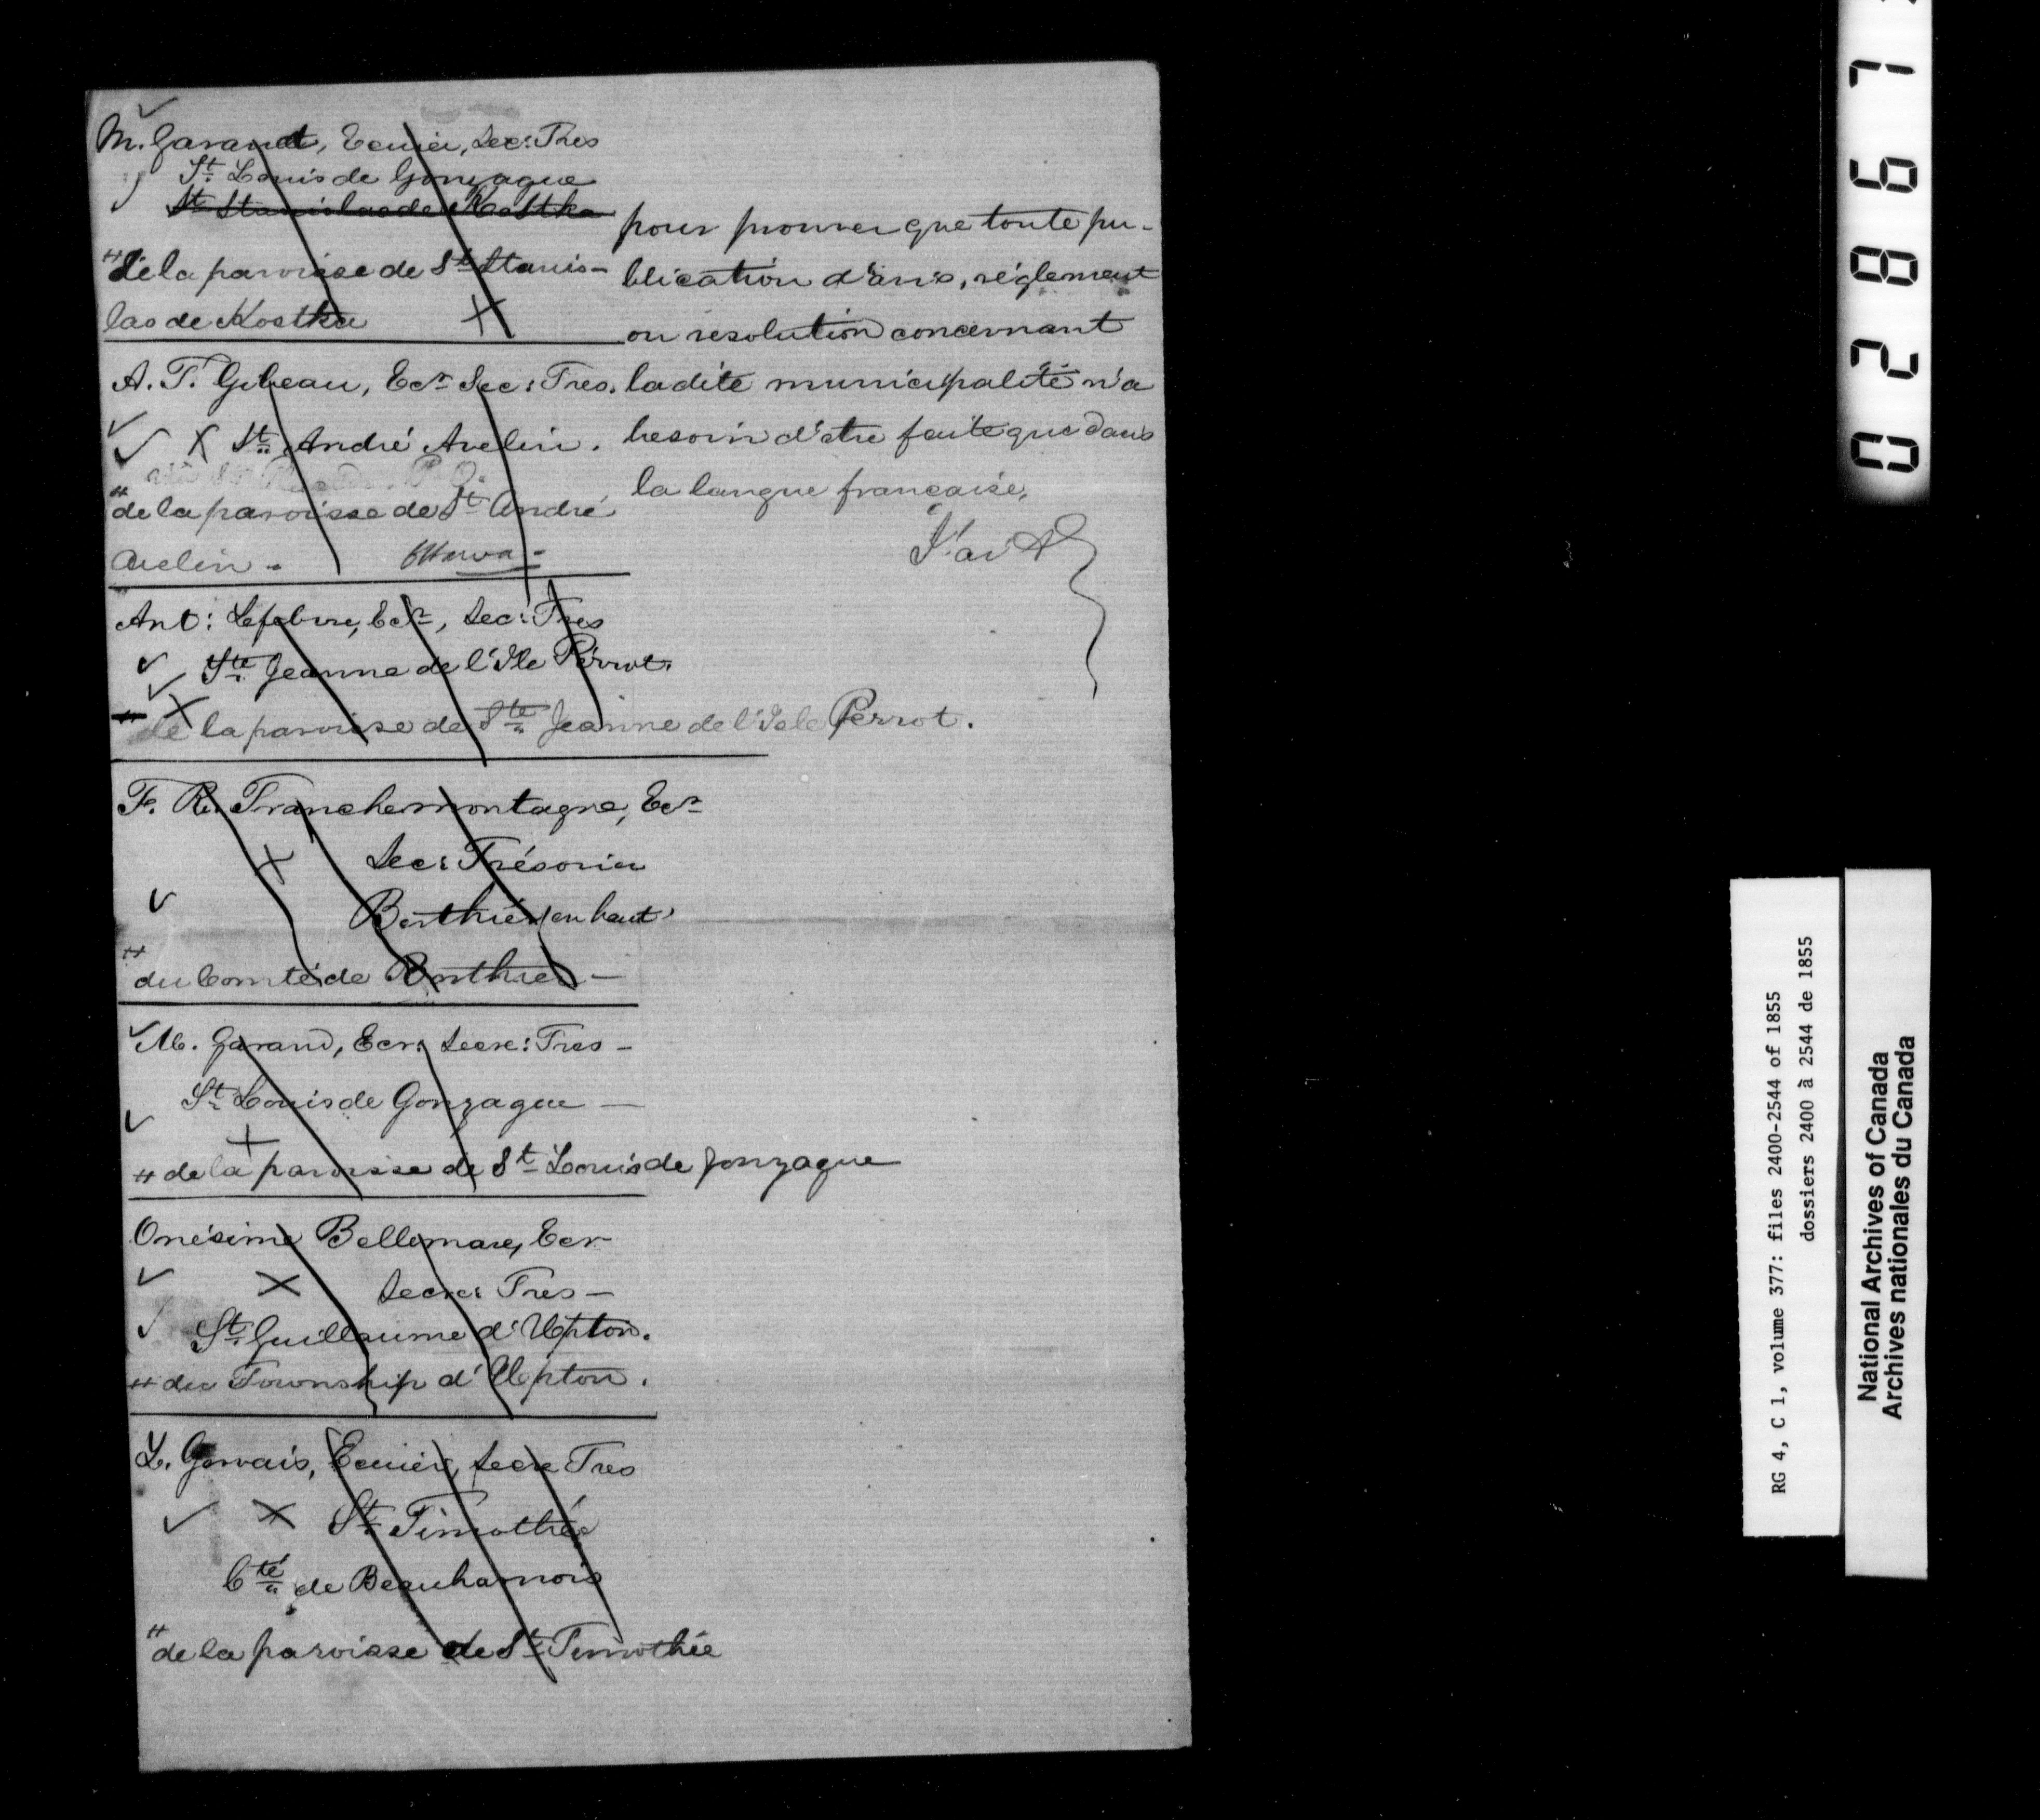 M. Garand, Ecuier, Sec: Tres
St. Louis de Gonzague
St Stanislas de Kostka
"De la paroisse de St Stanis-
las de Kostka X
pour prouver que toute pu-
blication d'avis, réglement
ou resolution concernant
ladite municipalité n'a
besoin d'etre faite que dans
la langue française,
J'ai
A. T. Gibeau, Ecr Sec: Tres.
X St. André Avelin.
" de la paroisse de St André
Avelin - Ottawa -
Ant: Lefebvre, Ecr, Sec: Tres
Ste Jeanne de l'Ile Perrot.
X de la paroisse de Ste Jeanne de l'Isle Perrot.
F. R. Tranchemontagne, Ecr
X Sec: Trésorier
Berthier (en haut)
" du Comté de Berthier -
M. Garand, Ecr: Secre: Tres -
St Louis de Gonzague -
X
" de la paroisse de St Louis de Gonzague
Onésime Bellemare, Ecr
X Secre: Tres -
St Guillaume d'Upton.
" du Township d'Upton.
L. Gervais, Ecuier, Secre Tres
X St. Timothée
Cté de Beauharnois
" de la paroisse de St Timothée
02867
RG 4, C 1, volume 377: files 2400-2544 of 1855
dossiers 2400 à 2544 de 1855
National Archives of Canada
Archives nationales du Canada